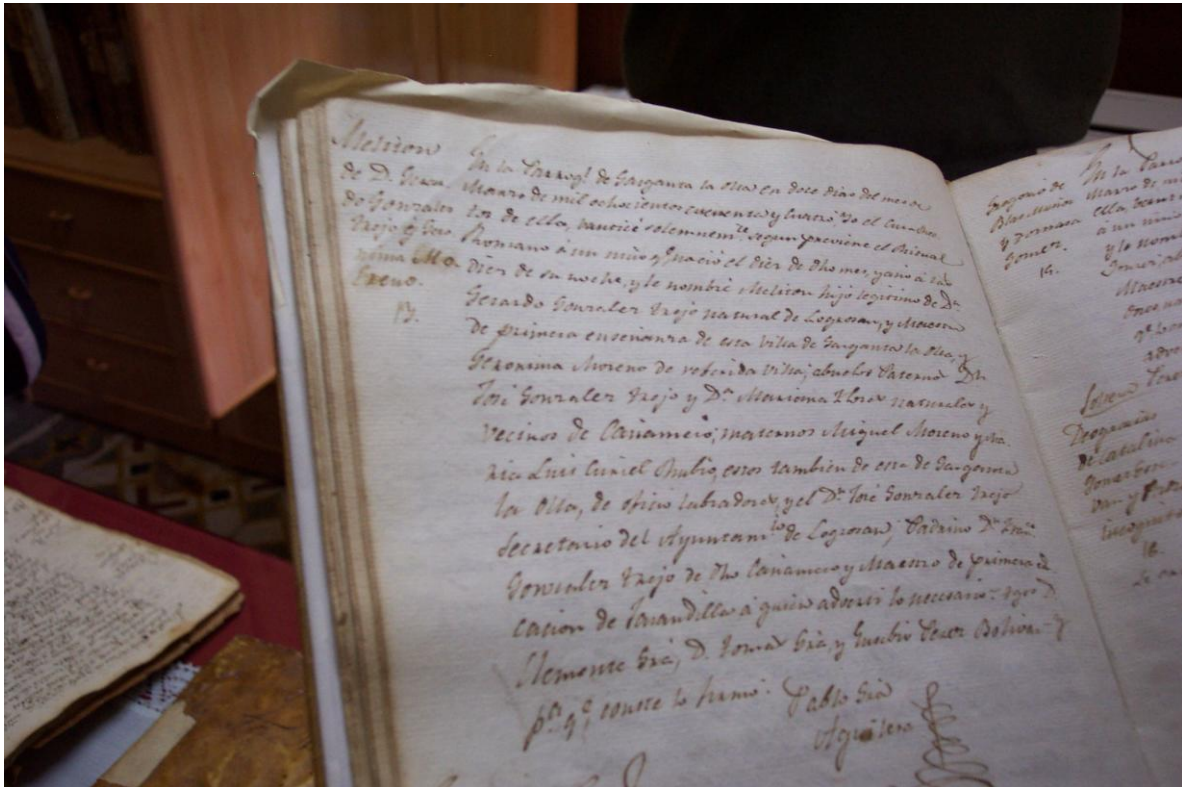 Meliton
de D. Gerar
do Gonzalez
Trejo y Gero
nima Mo-
reno.
13.
En la Parroql. de Garganta la olla en doce dias del mes de
Marzo de mil ochocientos cincuenta y cuatro: Yo el Cura
de ella, bauticé solemnemte. segun previene el Ritual
Romano á un niño q. nació el diez de dho mes, y año á las
diez de su noche, y le nombré Meliton hijo legitimo de Dn.
Gerardo Gonzalez Trejo natural de Logrosan, y Maestro
de primera enseñanza de esta villa de Garganta la olla, y
Geronima Moreno de referida villa; abuelos Paternos Dn.
José Gonzalez Trejo y Da. Mariana Flores naturales y
vecinos de Cañamero; maternos Miguel Moreno y Ma-
ria Luis Curiel Rubio, estos tambien de esta de Garganta
la Olla, de oficio labradores, y el Dn. José Gonzalez Trejo
Secretario del Ayuntamto. de Logrosan; Padrino Dn.
Gonzalez Trejo de dho Cañamero y Maestro de primera edu
cacion de Jarandilla á quien advertí lo necesario: tgos D.
Clemente Gra, D. Tomas Gra, y Eusebio Perez Bolivar y
pa. qe. conste lo firmo: Pablo Gra
Aguilera
Gregorio de
Blas Muñoz
y Tomasa
Gomez.
14.
En la Parro
Marzo de mi
ella, bauti
a un niño
y le nom
Gonzal
Maestro
Deogracias
de Catalina
incognito